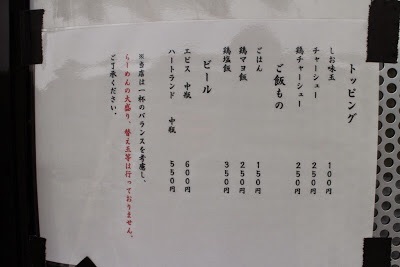 トッピング
しお味玉 100円
チャーシュー 250円
鶏チャーシュー 250円
ご飯もの
ごはん 150円
鶏マヨ飯 250円
鶏塩飯 350円
ビール
エビス 中瓶 600円
ハートランド 中瓶 550円
※当店は一杯のバランスを考慮し、
らーめんの大盛り、替え玉等は行っておりません。
ご了承ください。